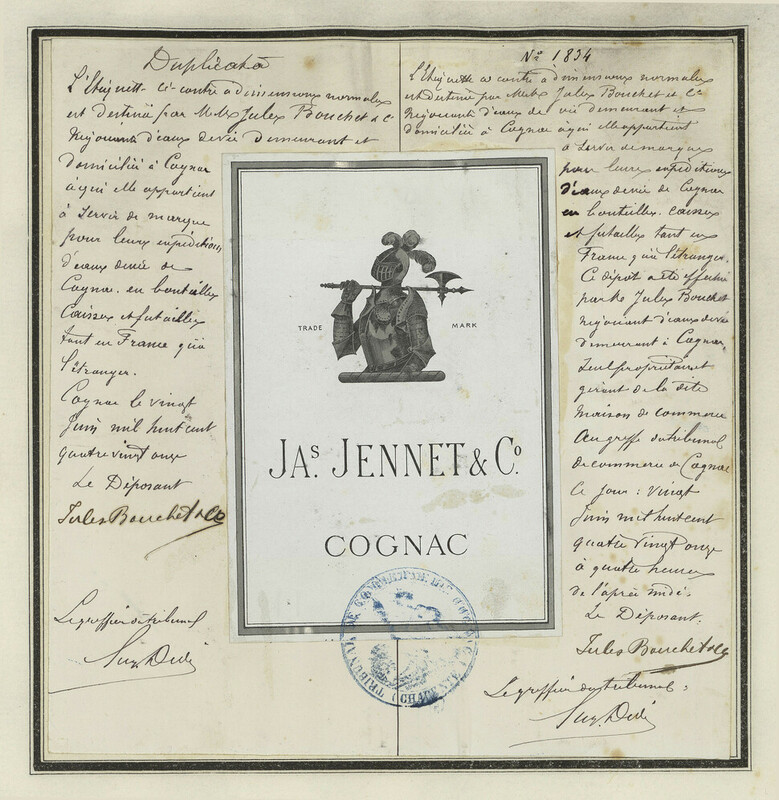 Duplicata
L'Etiquette ci-contre à dimensions normales
est destinée par MMrs Jules Bouchet & Co
Négociants d'eaux de vie demeurant et
domiciliés à Cognac
à qui elle appartient
à servir de marque
pour leurs expéditions
d'eaux de vie de
Cognac en bouteilles
Caisses et futailles
tant en France qu'à
l'étranger.
Cognac le vingt
Juin mil huit cent
quatre vingt onze
Le Déposant
Jules Bouchet & Co
Le greffier du tribunal
No 1834
L'Etiquette ci contre à dimensions normales
est destinée par MMrs Jules Bouchet et Co
Négociants d'eaux de vie demeurant et
domiciliés à Cognac à qui elle appartient
à servir de marque
pour leurs expéditions
d'eaux de vie de Cognac
en bouteilles caisses
et futailles tant en
France qu'à l'étranger.
Ce dépôt a été effectué
par Mr Jules Bouchet
négociant d'eaux de vie
demeurant à Cognac,
seul propriétaire et
gérant de la dite
maison de commerce
Au greffe du tribunal
de commerce de Cognac
Ce jour : vingt
Juin mil huit cent
quatre vingt onze
à quatre heures
de l'après midi.
Le Déposant.
Jules Bouchet & Co
Le greffier du tribunal :
TRADE MARK
JAS. JENNET & Co.
COGNAC
TRIBUNAL DE COMMERCE DE COGNAC